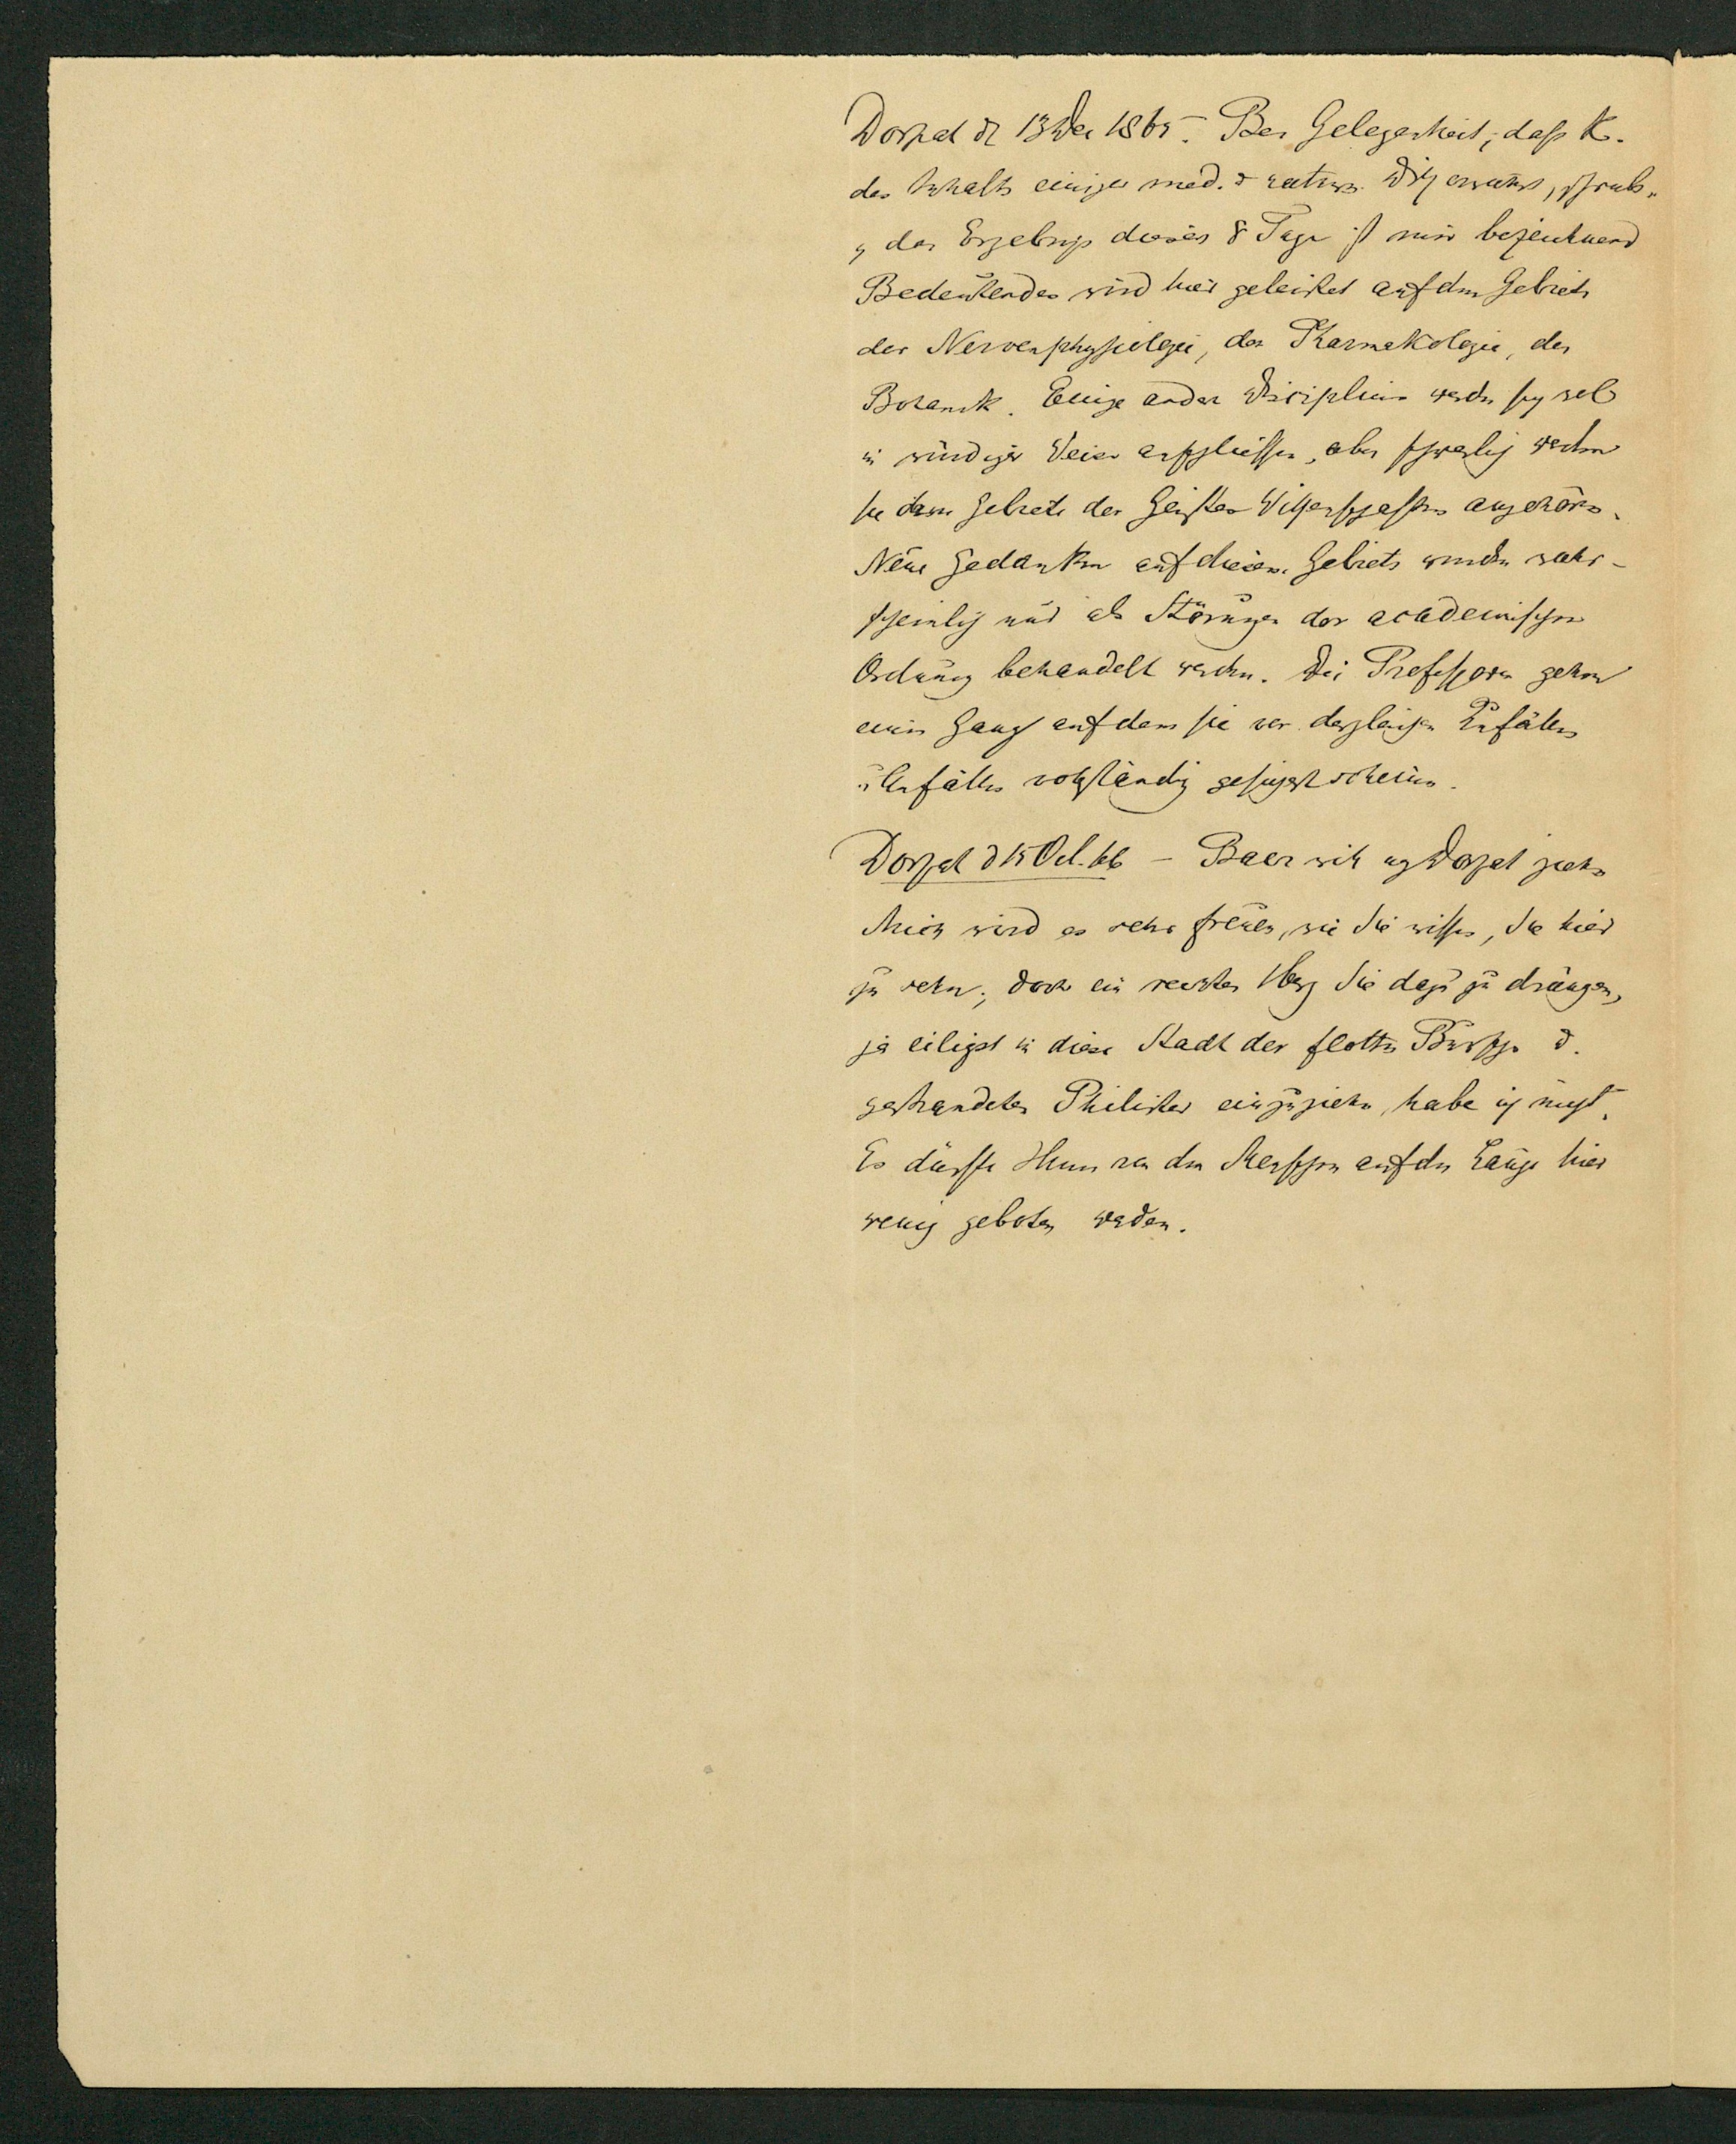 Dorpat d 13 Dec 1865. Bei Gelegenheit, daß K.
des Inhalts einiger med. & naturw. Diss erwähnt, schreib
„das Ergebniß dieser 8 Tage ist mir bezeichnend
Bedeutendes wird hier geleistet auf dem Gebiete
der Nervenphysiologie, der Pharmakologie, der
Botanik. Einige andere Disciplinen werden sich wol
in würdiger Weise anschließen, aber schwerlich werden
sie dem Gebiete der Geistes Wissenschaften angehören.
Neue Gedanken auf diesem Gebiete würden wahr-
scheinlich nur als Störungen der academischen
Ordnung behandelt werden. Die Professoren gehen
einen Gang auf dem sie vor dergleichen Zufällen
u Unfällen vollständig gesichert scheinen.
Dorpat d 15 Oct. 66 – Baer will nach Dorpat ziehen
Mich wird es sehr freuen, wie Sie wissen, Sie hier
zu sehen; doch ein rechtes Herz Sie dazu zu drängen,
ja eiligst in diese Stadt der flotten Bursche u.
gestrandeten Philister einzuziehen, habe ich nicht.
Es dürfte Ihnen von den Menschen auf die Länge hier
wenig geboten werden.